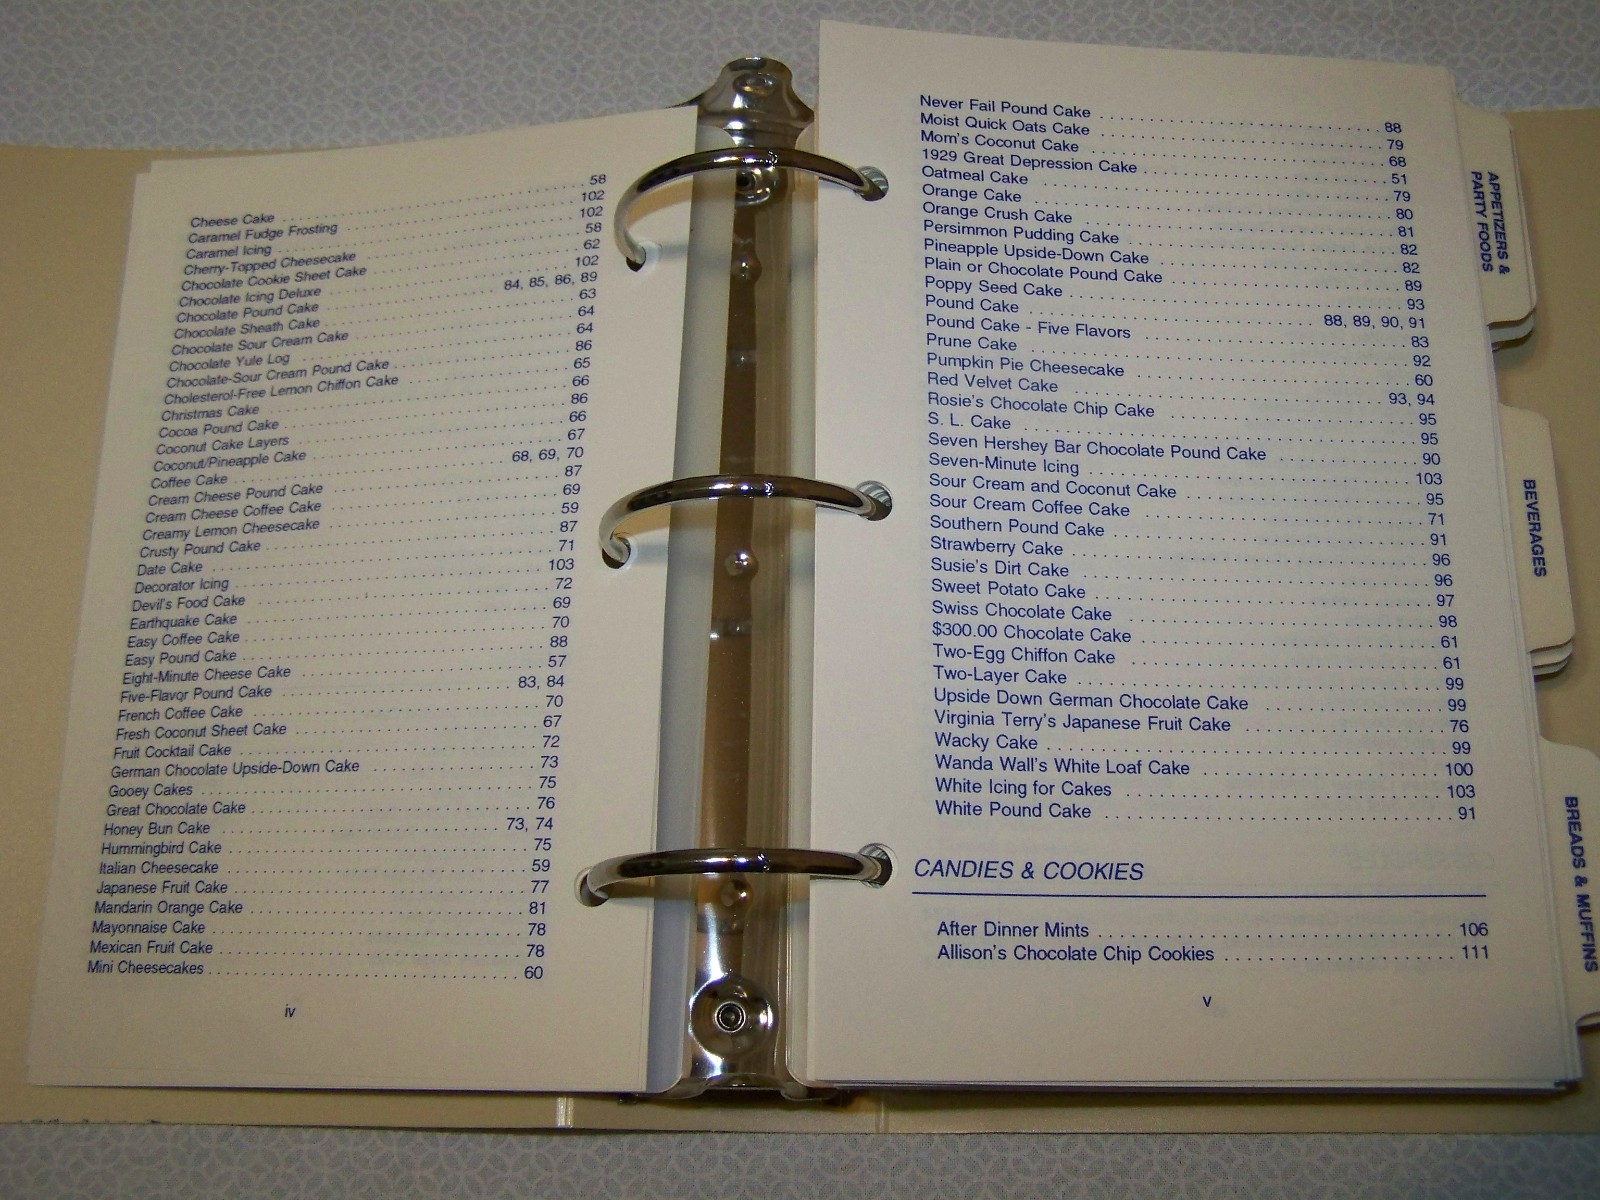 Cheese Cake . . . . . . . . 58
Caramel Fudge Frosting . . . . . . . . 102
Caramel Icing . . . . . . . . 102
Cherry-Topped Cheesecake . . . . . . . . 58
Chocolate Cookie Sheet Cake . . . . . . . . 62
Chocolate Icing Deluxe . . . . . . . . 102
Chocolate Pound Cake . . . . . . . . 84, 85, 86, 89
Chocolate Sheath Cake . . . . . . . . 63
Chocolate Sour Cream Cake . . . . . . . . 64
Chocolate Yule Log . . . . . . . . 64
Chocolate-Sour Cream Pound Cake . . . . . . . . 86
Cholesterol-Free Lemon Chiffon Cake . . . . . . . . 65
Christmas Cake . . . . . . . . 66
Cocoa Pound Cake . . . . . . . . 86
Coconut Cake Layers . . . . . . . . 66
Coconut/Pineapple Cake . . . . . . . . 67
Coffee Cake . . . . . . . . 68, 69, 70
Cream Cheese Pound Cake . . . . . . . . 87
Cream Cheese Coffee Cake . . . . . . . . 69
Creamy Lemon Cheesecake . . . . . . . . 59
Crusty Pound Cake . . . . . . . . 87
Date Cake . . . . . . . . 71
Decorator Icing . . . . . . . . 103
Devil's Food Cake . . . . . . . . 72
Earthquake Cake . . . . . . . . 69
Easy Coffee Cake . . . . . . . . 70
Easy Pound Cake . . . . . . . . 88
Eight-Minute Cheese Cake . . . . . . . . 57
Five-Flavor Pound Cake . . . . . . . . 83, 84
French Coffee Cake . . . . . . . . 70
Fresh Coconut Sheet Cake . . . . . . . . 67
Fruit Cocktail Cake . . . . . . . . 72
German Chocolate Upside-Down Cake . . . . . . . . 73
Gooey Cakes . . . . . . . . 75
Great Chocolate Cake . . . . . . . . 76
Honey Bun Cake . . . . . . . . 73, 74
Hummingbird Cake . . . . . . . . 75
Italian Cheesecake . . . . . . . . 59
Japanese Fruit Cake . . . . . . . . 77
Mandarin Orange Cake . . . . . . . . 81
Mayonnaise Cake . . . . . . . . 78
Mexican Fruit Cake . . . . . . . . 78
Mini Cheesecakes . . . . . . . . 60
iv
Never Fail Pound Cake . . . . . . . . 88
Moist Quick Oats Cake . . . . . . . . 79
Mom's Coconut Cake . . . . . . . . 68
1929 Great Depression Cake . . . . . . . . 51
Oatmeal Cake . . . . . . . . 79
Orange Cake . . . . . . . . 80
Orange Crush Cake . . . . . . . . 81
Persimmon Pudding Cake . . . . . . . . 82
Pineapple Upside-Down Cake . . . . . . . . 82
Plain or Chocolate Pound Cake . . . . . . . . 89
Poppy Seed Cake . . . . . . . . 93
Pound Cake . . . . . . . . 88, 89, 90, 91
Pound Cake - Five Flavors . . . . . . . . 83
Prune Cake . . . . . . . . 92
Pumpkin Pie Cheesecake . . . . . . . . 60
Red Velvet Cake . . . . . . . . 93, 94
Rosie's Chocolate Chip Cake . . . . . . . . 95
S. L. Cake . . . . . . . . 95
Seven Hershey Bar Chocolate Pound Cake . . . . . . . . 90
Seven-Minute Icing . . . . . . . . 103
Sour Cream and Coconut Cake . . . . . . . . 95
Sour Cream Coffee Cake . . . . . . . . 71
Southern Pound Cake . . . . . . . . 91
Strawberry Cake . . . . . . . . 96
Susie's Dirt Cake . . . . . . . . 96
Sweet Potato Cake . . . . . . . . 97
Swiss Chocolate Cake . . . . . . . . 98
$300.00 Chocolate Cake . . . . . . . . 61
Two-Egg Chiffon Cake . . . . . . . . 61
Two-Layer Cake . . . . . . . . 99
Upside Down German Chocolate Cake . . . . . . . . 99
Virginia Terry's Japanese Fruit Cake . . . . . . . . 76
Wacky Cake . . . . . . . . 99
Wanda Wall's White Loaf Cake . . . . . . . . 100
White Icing for Cakes . . . . . . . . 103
White Pound Cake . . . . . . . . 91
CANDIES & COOKIES
After Dinner Mints . . . . . . . . 106
Allison's Chocolate Chip Cookies . . . . . . . . 111
v
APPETIZERS &
PARTY FOODS
BEVERAGES
BREADS & MUFFINS